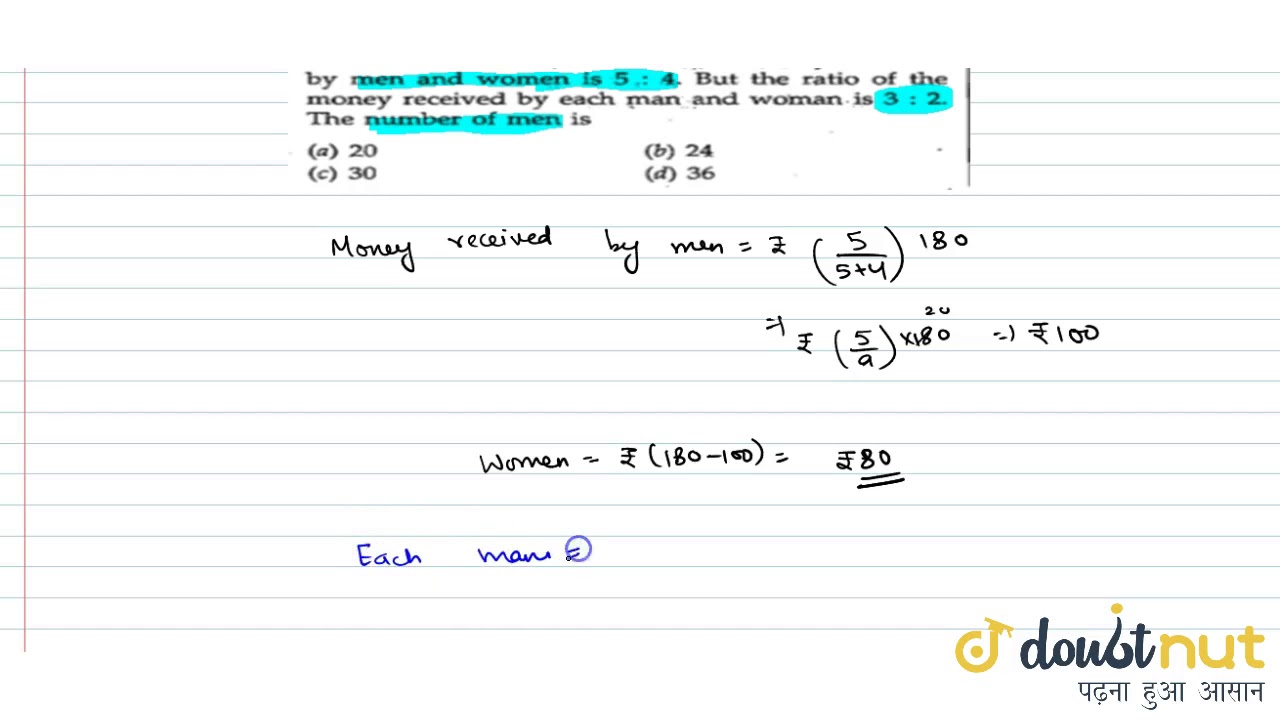 by men and women is 5 : 4. But the ratio of the
money received by each man and woman is 3 : 2.
The number of men is
(a) 20 (b) 24
(c) 30 (d) 36
Money received by men = ₹ (5/5+4) 180
=) ₹ (5/9) ×180 20 =) ₹100
Women = ₹ (180-100) = ₹80
Each man =
doubtnut
पढ़ना हुआ आसान